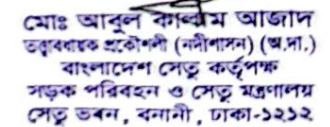 মোঃ আবুল কালাম আজাদ
তত্ত্বাবধায়ক প্রকৌশলী (নদীশাসন) (অ.দা.)
বাংলাদেশ সেতু কর্তৃপক্ষ
সড়ক পরিবহন ও সেতু মন্ত্রণালয়
সেতু ভবন, বনানী, ঢাকা-১২১২